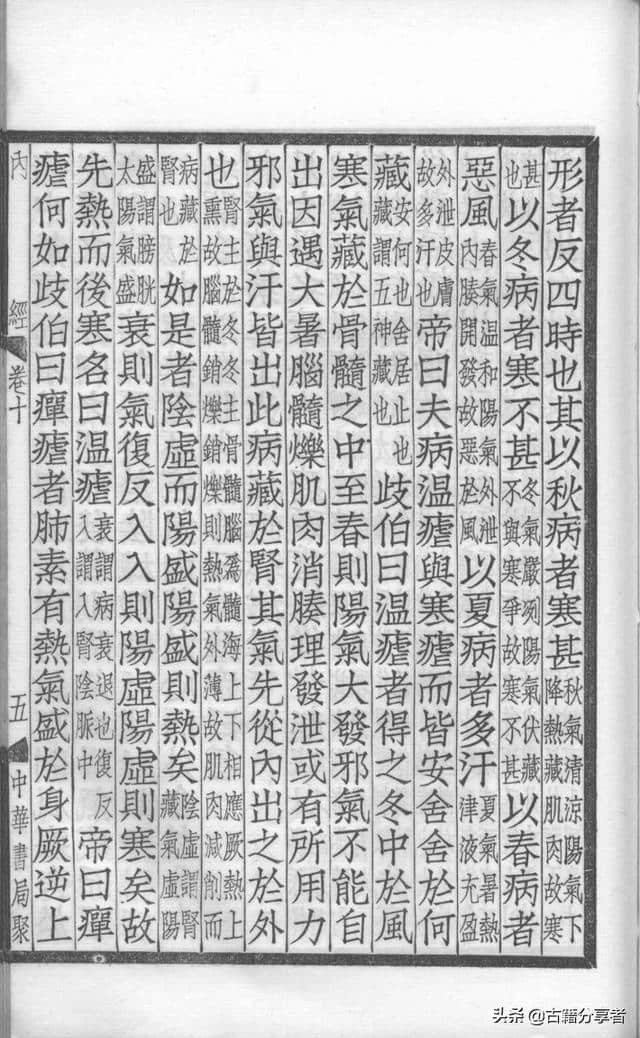 形者反四時也其以秋病者寒甚秋氣清涼陽氣下降熱藏肌肉故寒
甚也以冬病者寒不甚冬氣嚴冽陽氣伏藏不與寒爭故寒不甚以春病者
惡風春氣溫和陽氣外泄肉腠開發故惡於風以夏病者多汗夏氣暑熱津液充盈
外泄皮膚故多汗也帝曰夫病溫瘧與寒瘧而皆安舍舍於何
藏安何也舍居止也藏謂五神藏也歧伯曰溫瘧者得之冬中於風
寒氣藏於骨髓之中至春則陽氣大發邪氣不能自
出因遇大暑腦髓爍肌肉消腠理發泄或有所用力
邪氣與汗皆出此病藏於腎其氣先從內出之於外
也腎主於冬冬主骨髓腦為髓海上下相應厥熱上熏故腦髓銷爍銷爍則熱氣外薄故肌肉減削而
病藏於腎也如是者陰虛而陽盛陽盛則熱矣陰虛謂腎藏氣虛陽
盛謂膀胱太陽氣盛衰則氣復反入入則陽虛陽虛則寒矣故
先熱而後寒名曰溫瘧衰謂病衰退也復反入謂入腎陰脈中帝曰癉
瘧何如歧伯曰癉瘧者肺素有熱氣盛於身厥逆上
內經 卷十 五 中華書局聚
头条 @古籍分享者